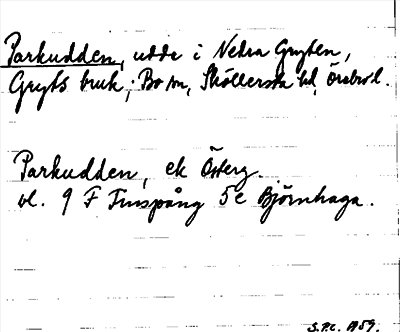 Parkudden, udde i Nedra Gryten,
Gryts bruk, Bo sn, Sköllersta hd, Örebro l.
Parkudden, ek Österg.
bl. 9 F Finspång 5 e Björnhaga.
S.P.C. 1959.